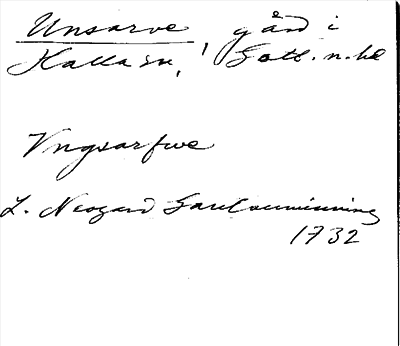 Unsarve, gård i
Halla sn, Gotl. n. hd
Vngsarfwe
L. Neogard Gautauminning
1732